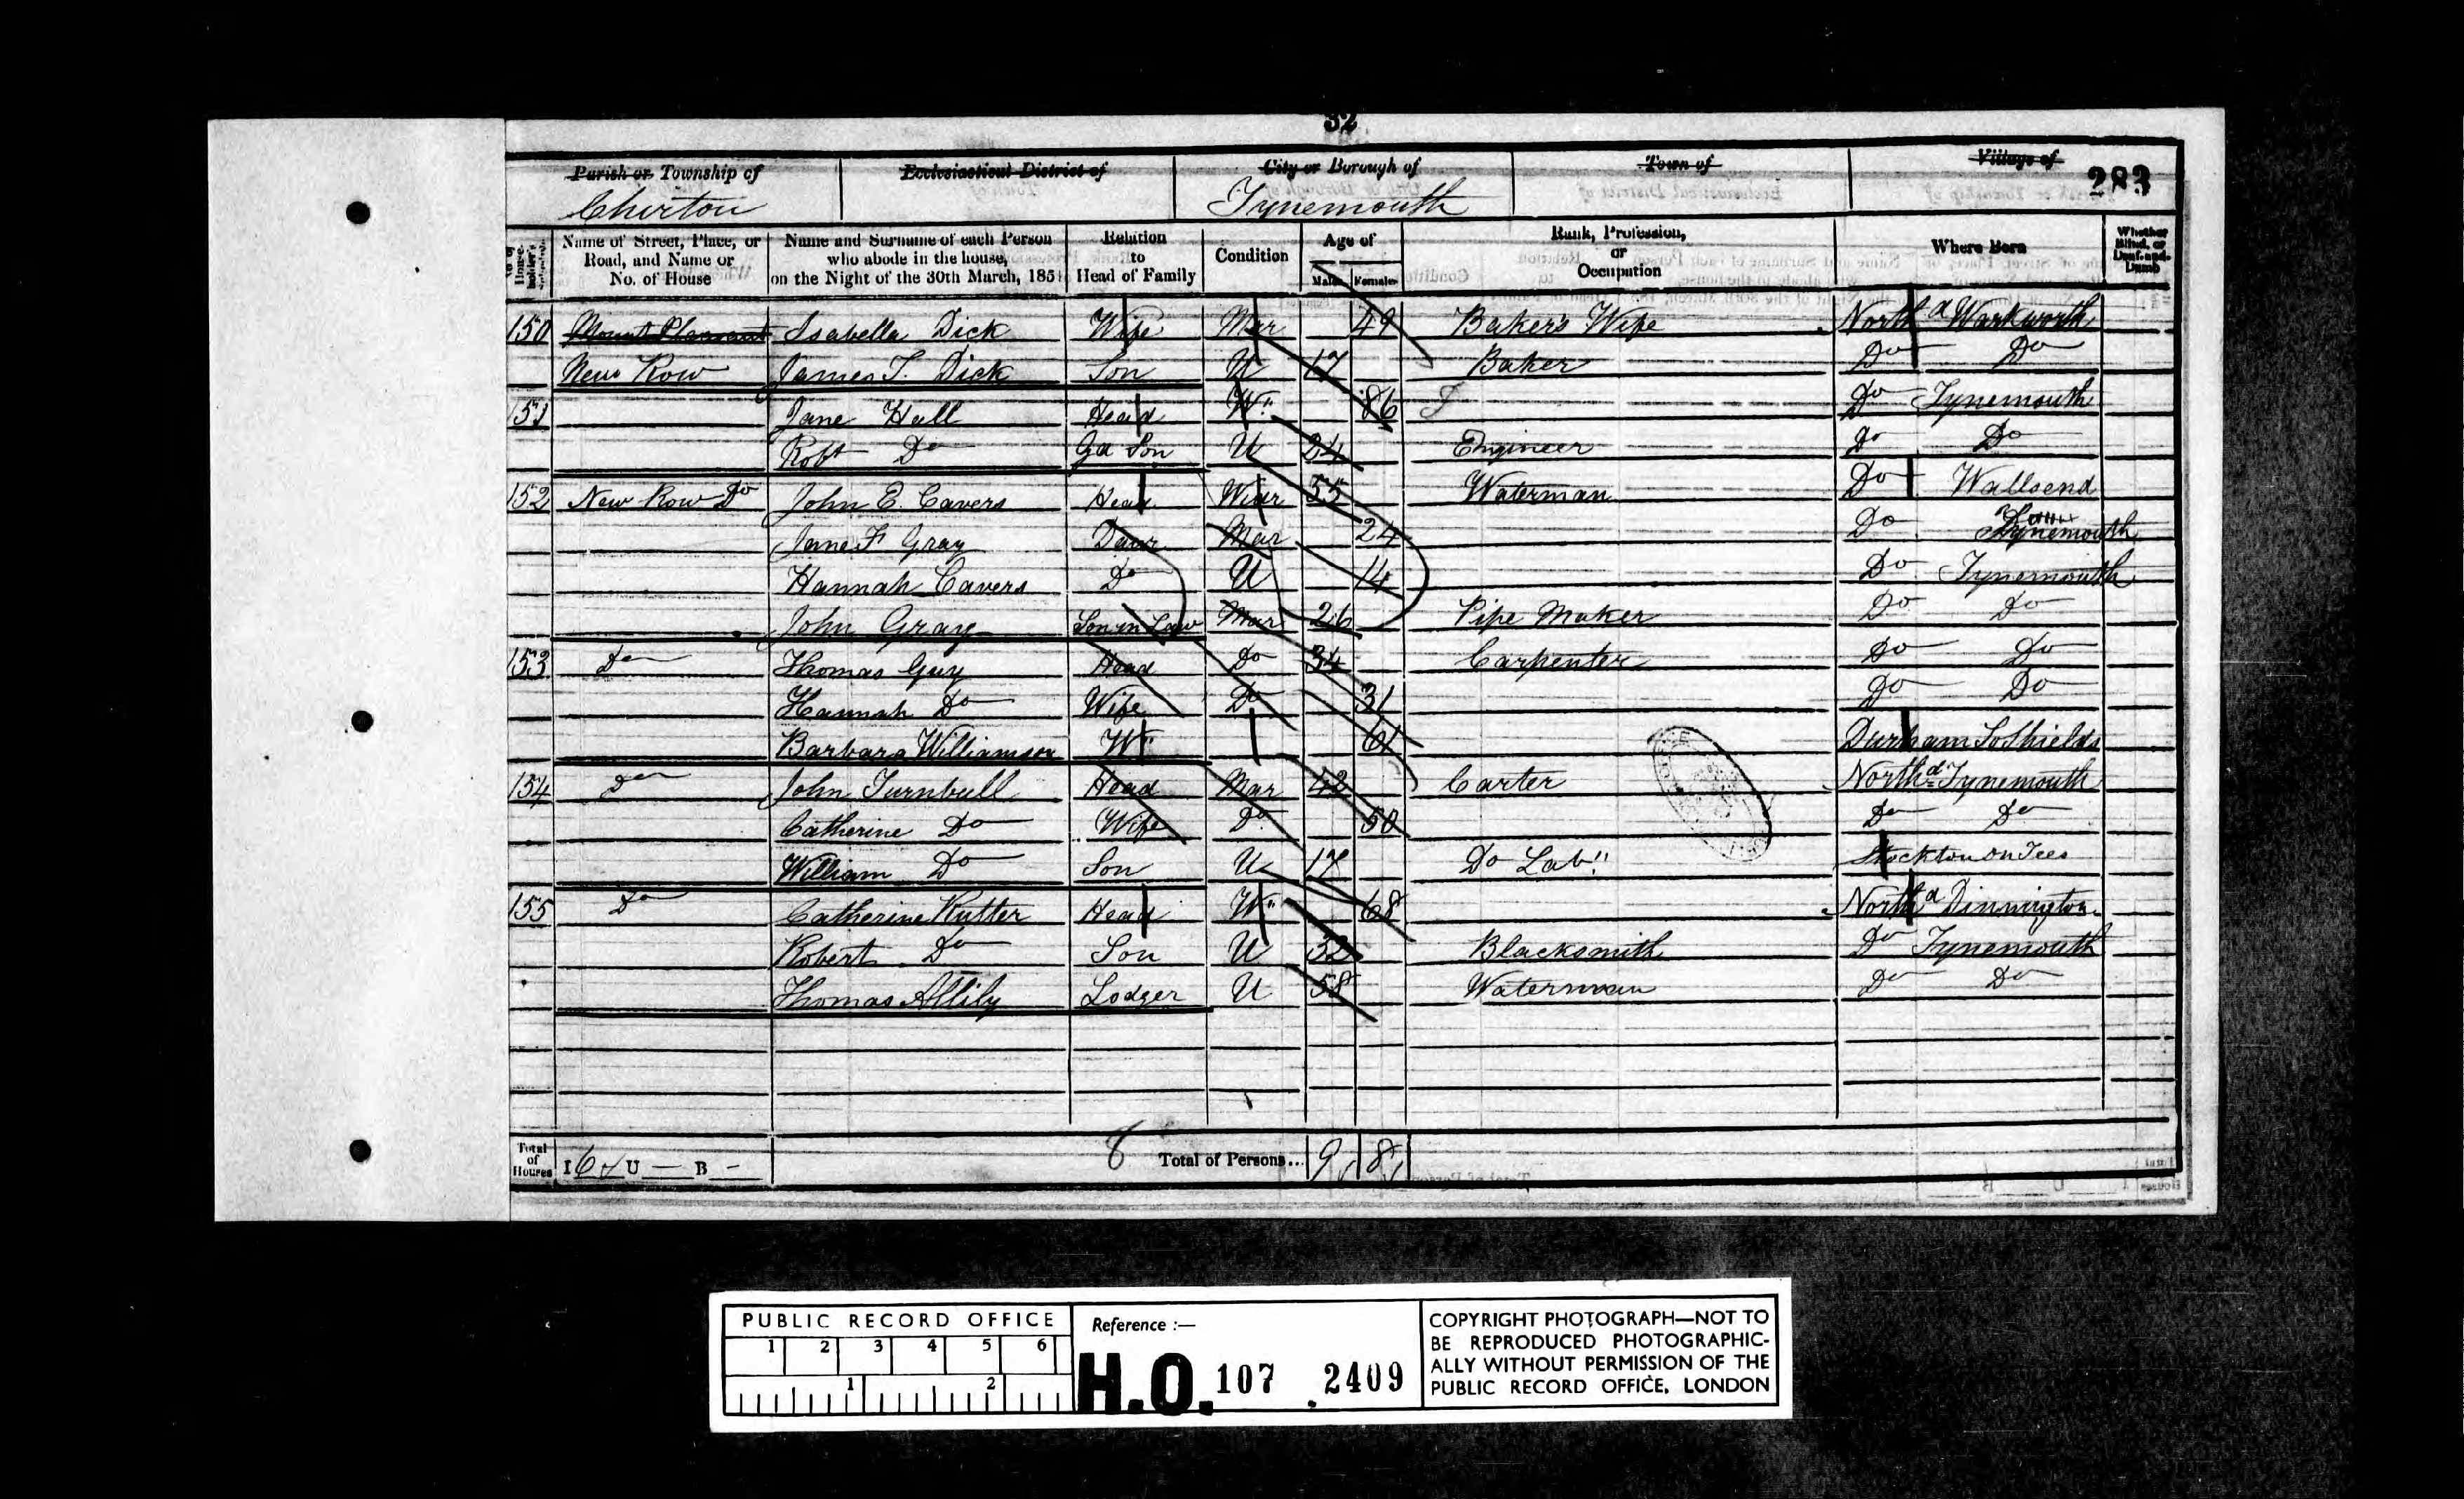 32
Parish or Township of Ecclesiastical District of City or Borough of Town of Village of 283
Chirton Tynemouth
No. of House-holder's Name of Street, Place, or Road, and Name or No. of House Name and Surname of each Person who abode in the house, on the Night of the 30th March, 1851 Relation to Head of Family Condition Age of Males Females Rank, Profession, or Occupation Where Born Whether Blind, or Deaf-and-Dumb
150 Mount Pleasant Isabella Dick Wife Mar 49 Baker's Wife North d Warkworth
New Row James T. Dick Son U 17 Baker Do Do
151 Jane Hall Head W 86 Do Tynemouth
Robt Do Gd Son U 24 Engineer Do Do
152 New Row Do John E. Cavers Head 55 Waterman Do Wallsend
Jane F Gray Daur Mar 24 Do Tynemouth
Hannah Cavers Do U 14 Do Tynemouth
John Gray Son in Law Mar 26 Pipe Maker Do Do
153 Do Thomas Guy Head Do 34 Carpenter Do Do
Hannah Do Wife Do 31 Do Do
Barbara Williamson W 61 Durham So Shields
154 Do John Turnbull Head Mar 42 Carter North d Tynemouth
Catherine Do Wife Do 50 Do Do
William Do Son U 17 Do Lab Stockton on Tees
155 Do Catherine Rutter Head W 68 North d Dinnington
Robert Do Son U 32 Blacksmith Do Tynemouth
Thomas Lodger U 58 Waterman Do Do
Total of Houses I 6 U — B - 8 Total of Persons... 9 8
PUBLIC RECORD OFFICE
1 2 3 4 5 6
1 2
Reference :—
H.O. 107 2409
COPYRIGHT PHOTOGRAPH—NOT TO
BE REPRODUCED PHOTOGRAPHIC-
ALLY WITHOUT PERMISSION OF THE
PUBLIC RECORD OFFICE, LONDON